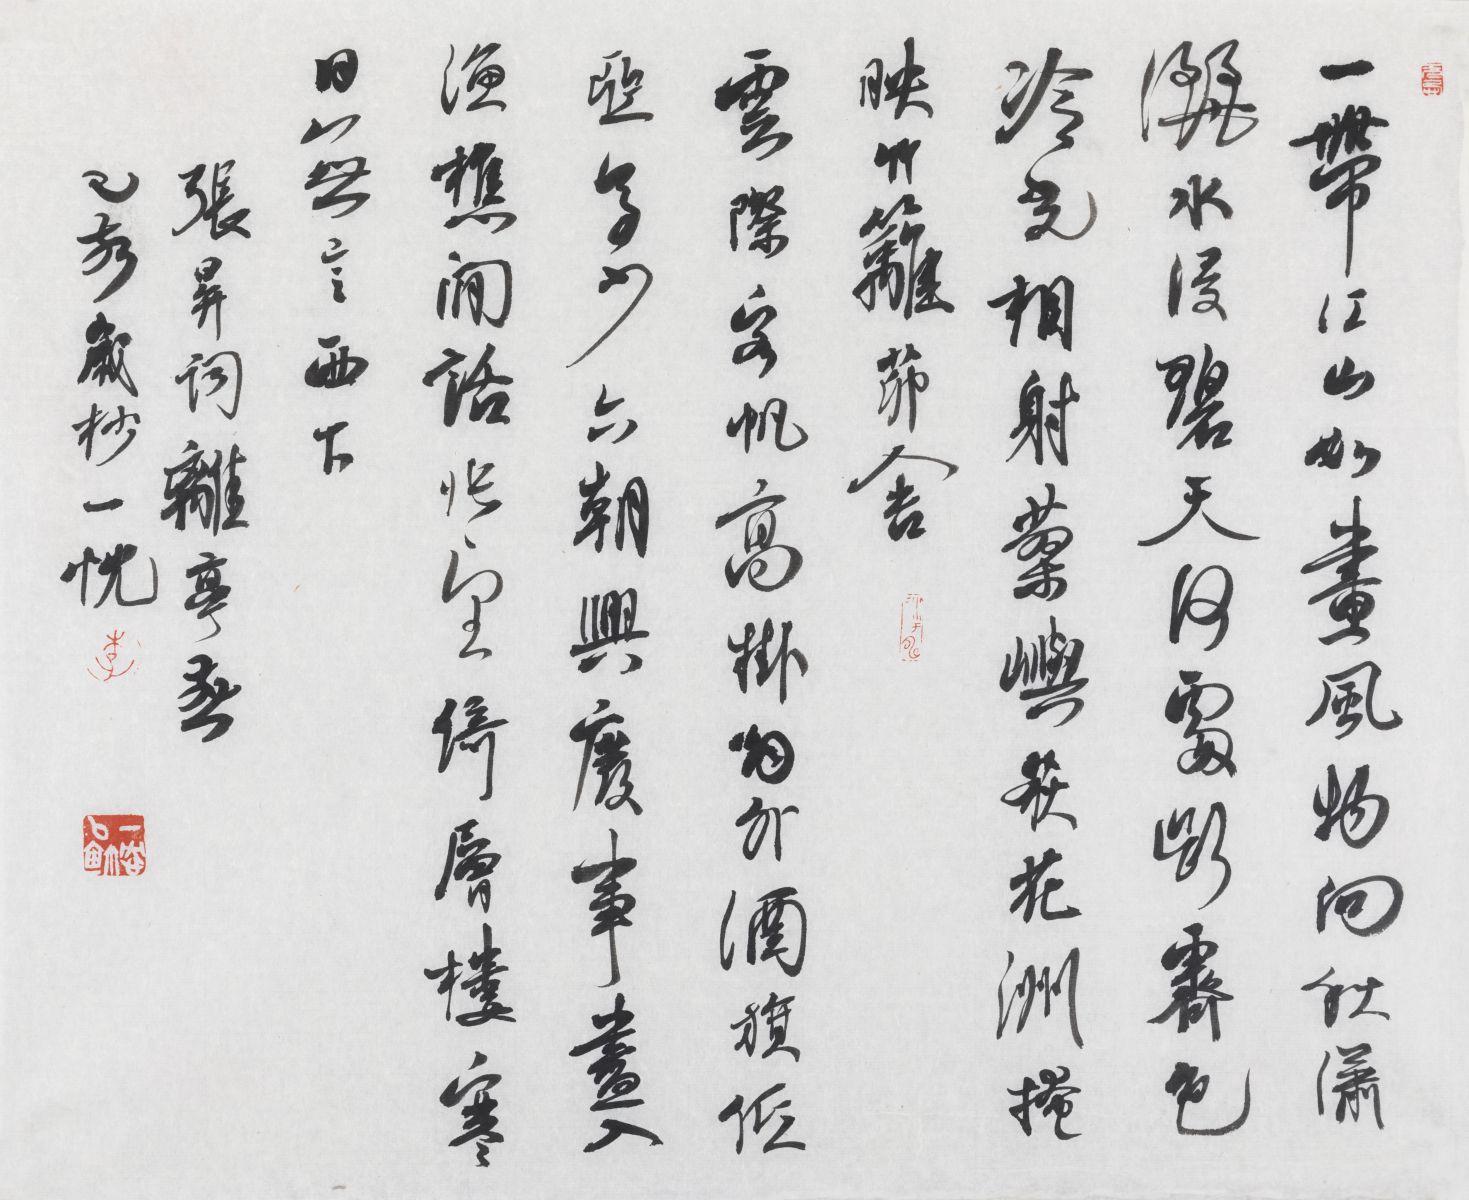 一帶江山如畫風物向秋瀟
灑水浸碧天何處斷霽色
冷光相射蓼嶼荻花洲掩
映竹籬茅舍
雲際客帆高掛烟外酒旗低
亞多少六朝興廢事盡入
漁樵閒話悵望倚層樓寒
日無言西下
張昇詞離亭燕
己亥歲杪一恍
李